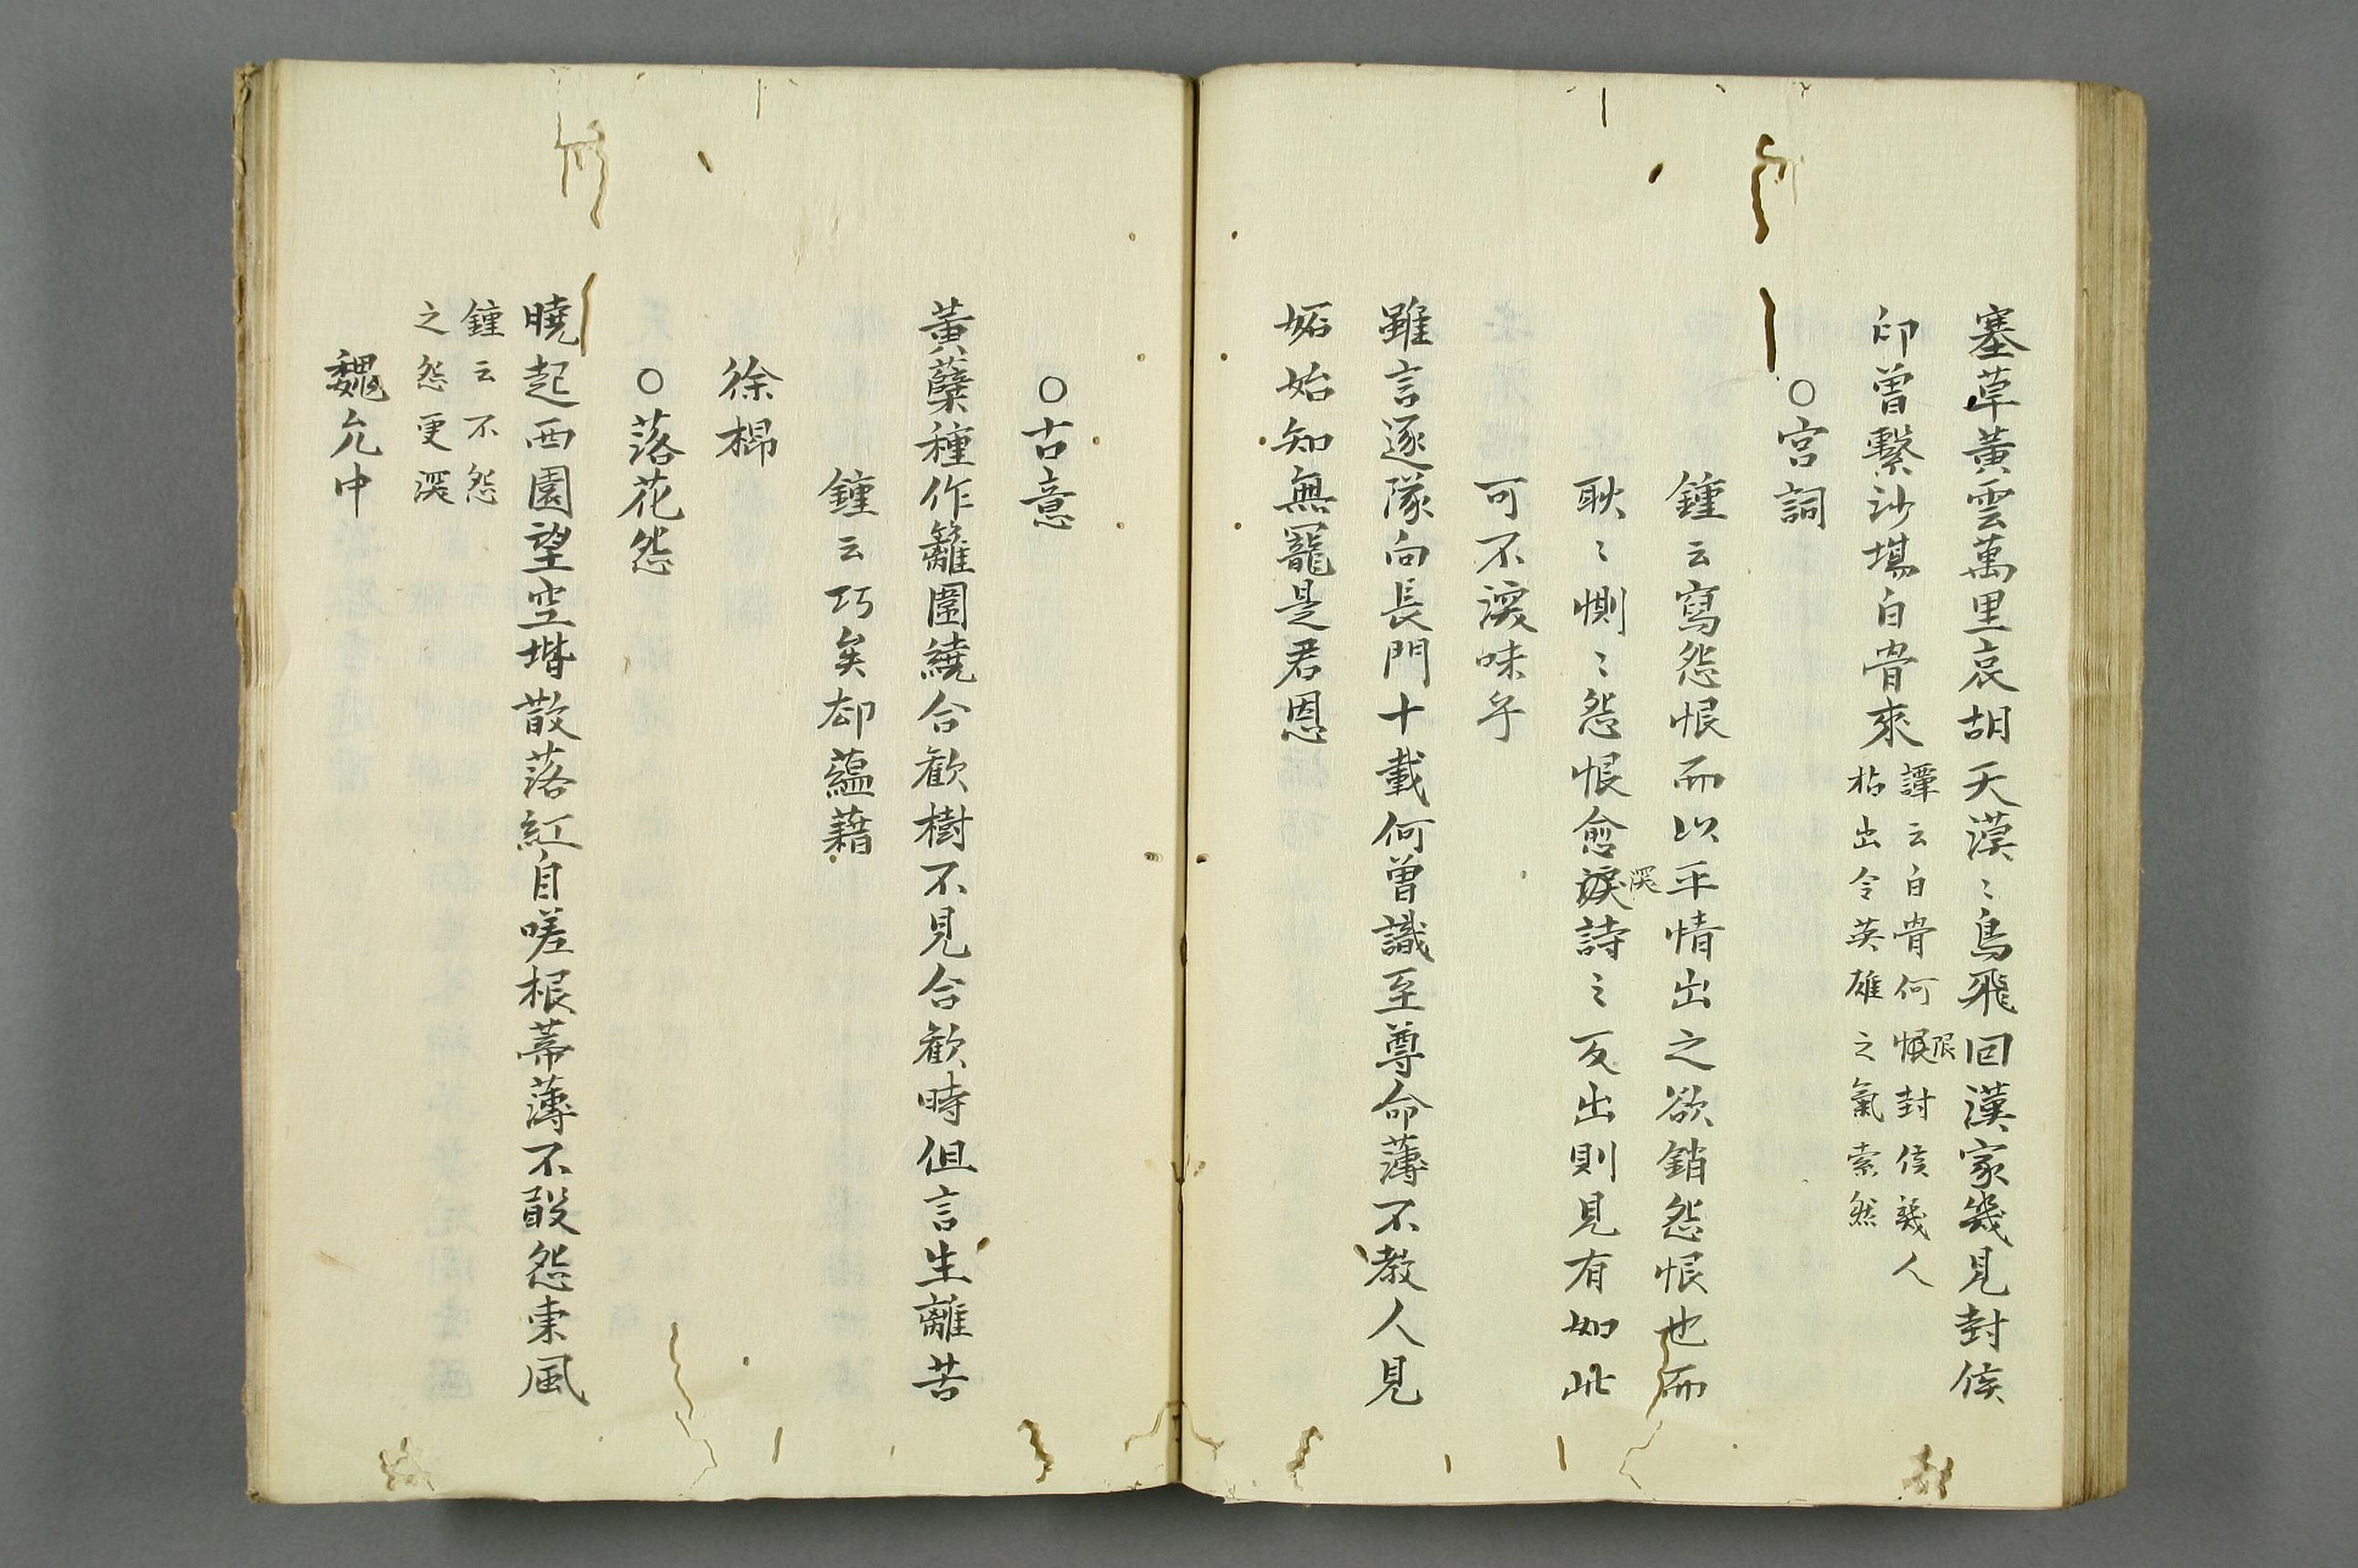 塞草黃雲萬里哀胡天漠〻鳥飛回漢家幾見封侯
印曾繫沙場白骨來
譚云白骨何恨封侯幾人
限
拈出令英雄之氣索然
○宮詞
鍾云寫怨恨而以平情出之欲銷怨恨也而
耿〻惻〻怨恨愈淚詩之〻反出則見有如此
深
可不深味乎
雖言逐隊向長門十載何曾識至尊命薄不教人見
妬始知無寵是君恩
○古意
黃蘗種作籬圍繞合歡樹不見合歡時但言生離苦
鍾云巧矣却蘊藉
徐楞
○落花怨
曉起西園望空堦散落紅自嗟根蒂薄不敢怨東風
鍾云不怨
之怨更深
魏允中